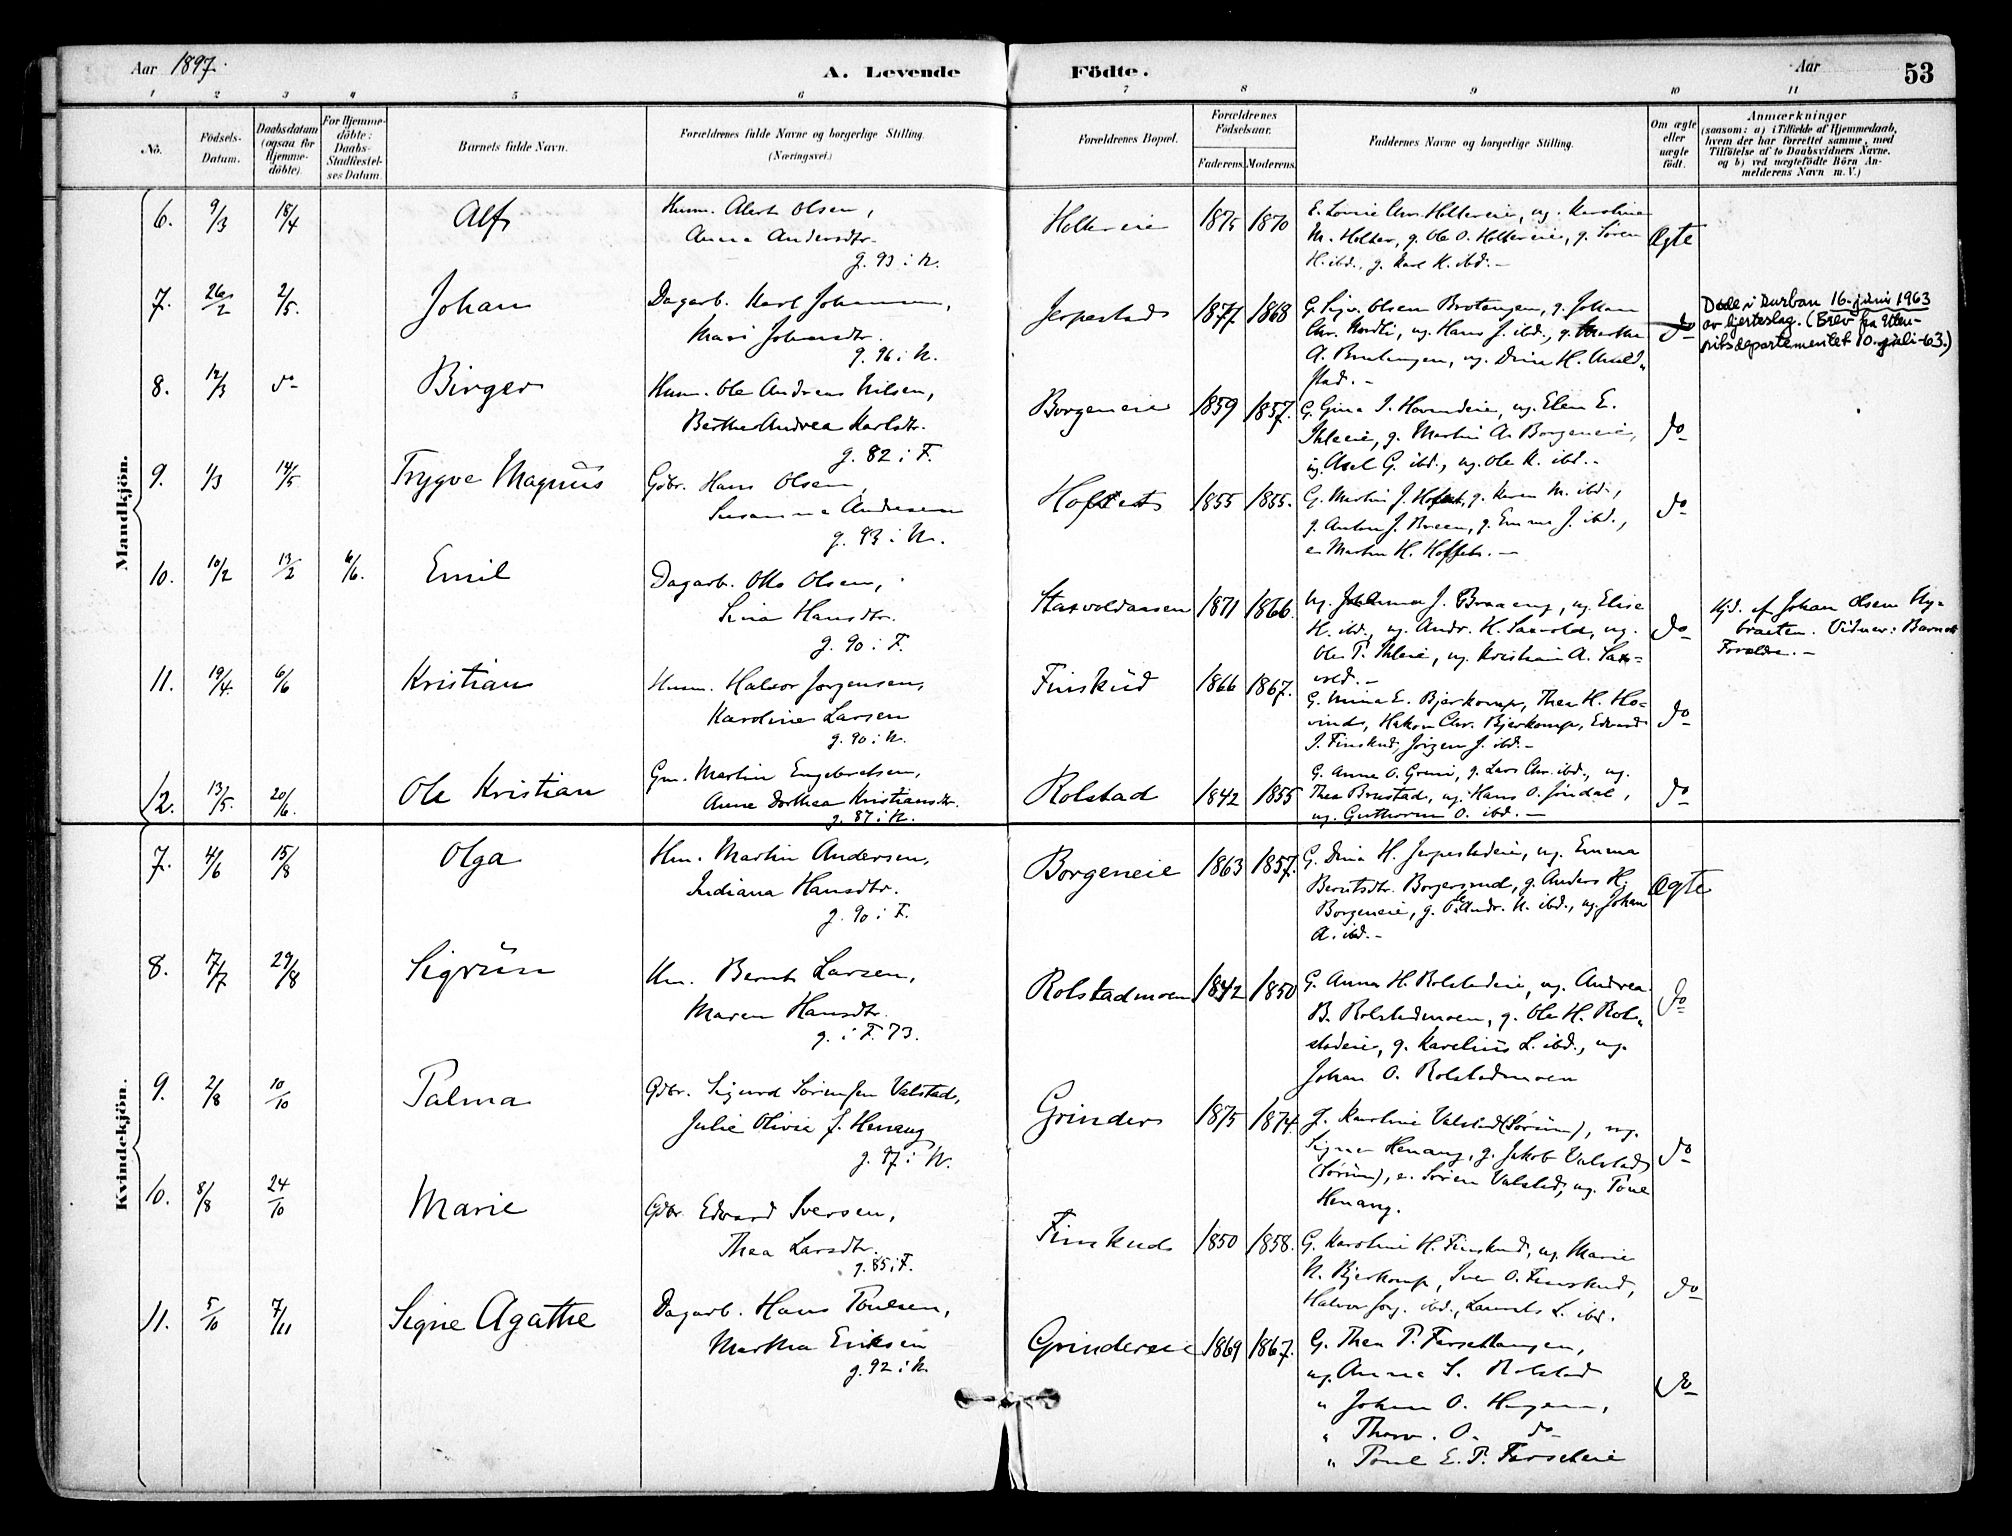 Aar 1897.
A. Levende Födte.
Aar
53
1 2 3 4 5 6 7 8 9 10 11
Nô.
Födsels-Datum.
Daabsdatum (ogsaa for Hjemmedöbte).
For Hjemmedöbte: Daabs-Stadfæstelses Datum.
Barnets fulde Navn.
Forældrenes fulde Navne og borgerlige Stilling. (Næringsvei.)
Forældrenes Bopæl.
Forældrenes Födselsaar.
Faderens. Moderens.
Faddernes Navne og borgerlige Stilling.
Om ægte eller uægte födt.
Anmærkninger
(saasom: a) i Tilfælde af Hjemmedaab,
hvem der har forrettet samme, med
Tilföielse af to Daabsvidners Navne,
og b) ved uægtefödte Börn An-
melderens Navn m. V.)
Mandkjön.
6. 9/3 18/4 Alf
Husm. Albert Olsen,
Anna Andersdtr.
g. 93 i N.
Holtereie 1875 1870
M. Holter, g. Ole O. Holtereie, g. Søren
H. ibd., g. Karl K. ibd. -
Ægte
7. 26/2 2/5. Johan
Dagarb. Karl Johansen,
Mari Johansdtr.
g. 96 i N.
Jerpestad 1877. 1868
G. Sigv. Olsen Brotangen, g. Johan
Chr. Nordli, ug. Hans J. ibd., g. Martha
A. Brotangen, ug. Dina H.
stad. -
do
Døde i Durban 16. juni 1963
av hjerteslag. (Brev fra Uten-
riksdepartementet 10. juli -63.)
8. 12/3 do Birger
Husm. Ole Andreas Nilsen,
Berthe Andrea Karlsdtr.
g. 82 i F.
Borgeneie 1859 1857.
G. Gina I. ug. Elen E.
g. Martin A. Borgeneie,
ug. Axel G. ibd., ug. Ole K. ibd. -
do
9. 1/3 14/5 Trygve Magnus
Gdbr. Hans Olsen,
Susanna Andresen
g. 83 i N.
Holset 1855 1855.
G. Martin J. g. Karen M. ibd.,
g. Anton J. Breen, g. Emma J. ibd.,
e. Martin H. -
do
10. 10/2 13/2 6/6. Emil
Dagarb. Otto Olsen,
Lina Hansdtr.
g. 90 i F.
1871 1866.
ug. Johanna J. Braaeng, ug. Elise
H. ibd., ug. Andr. H. Saxvold, ug.
Ole T. ug. Kristian A. Sax-
vold. -
do
Hjd. af Johan Olsen Ny-
braaten. Vidner: Barnets
Forældre. -
11. 19/4. 6/6 Kristian
Husm. Halvor Jørgensen,
Karoline Larsen
g. 90 i N.
Finskud 1866 1867.
G. Mina E. Bjerkomp, Thea H. Ho-
vind, Hakon Chr. Bjerkomp, Edvard
I. Finskud, Jørgen J. ibd. -
do
12. 13/5. 20/6. Ole Kristian
Gm. Martin Engebretsen,
Anne Dorthea Kristiansdtr.
g. 87 i N.
Rolstad 1842 1855
G. Anne O. Greni, g. Lars Chr. ibd., ug.
Thea Brustad, ug. Hans O. Jøndal,
ug. Guthorm O. ibd. -
do
Kvindekjön.
7. 4/6 15/8 Olga
Hm. Martin Andersen,
Indiana Hansdtr.
g. 90 i F.
Borgeneie 1863 1857.
G. Dina H. Jerpestadeie, ug. Emma
Berntsdtr. Borgersrud, g. Anders H.
Borgeneie, g. Ole Andr. N. ibd., ug. Johan
A. ibd. -
Ægte
8. 17/7 29/8 Sigrun
Hm. Bernt Larsen,
Maren Hansdtr.
g. i F. 73.
Rolstadmoen 1842 1850
G. Anna H. Rolstadeie, ug. Andrea
B. Rolstadmoen, g. Ole H. Rol-
stadeie, g. Karelius L. ibd., ug.
Johan O. Rolstadmoen
do
9. 2/8 10/10 Palma
Gdbr. Sigurd Sørensen Valstad,
Julie Olivie J. Henæng
g. 97 i N.
Grinder 1875 1874.
g. Karoline Valstad (Sørum), ug.
Signe Henæng, g. Jakob Valstad
(Sørum), e. Søren Valstad, ug. Tone
Henæng.
do
10. 8/8 24/10 Marie
Gdbr. Edvard Iversen,
Thea Larsdtr.
g. 85 i F.
Finskud 1850 1858.
G. Karoline H. Finskud, ug. Marie
N. Bjerkomp, Iver O. Finskud,
Halvor Jørg. ibd., Laurits L. ibd.
do
11. 5/10 7/11 Signe Agathe
Dagarb. Hans Poulsen,
Martha Eriksen
g. 92 i N.
Grindereie 1869 1867.
G. Thea P.
ug. Anna S. Rolstad
" Johan O. Haugen,
" Thorv. O. do
" Poul E. P.
do